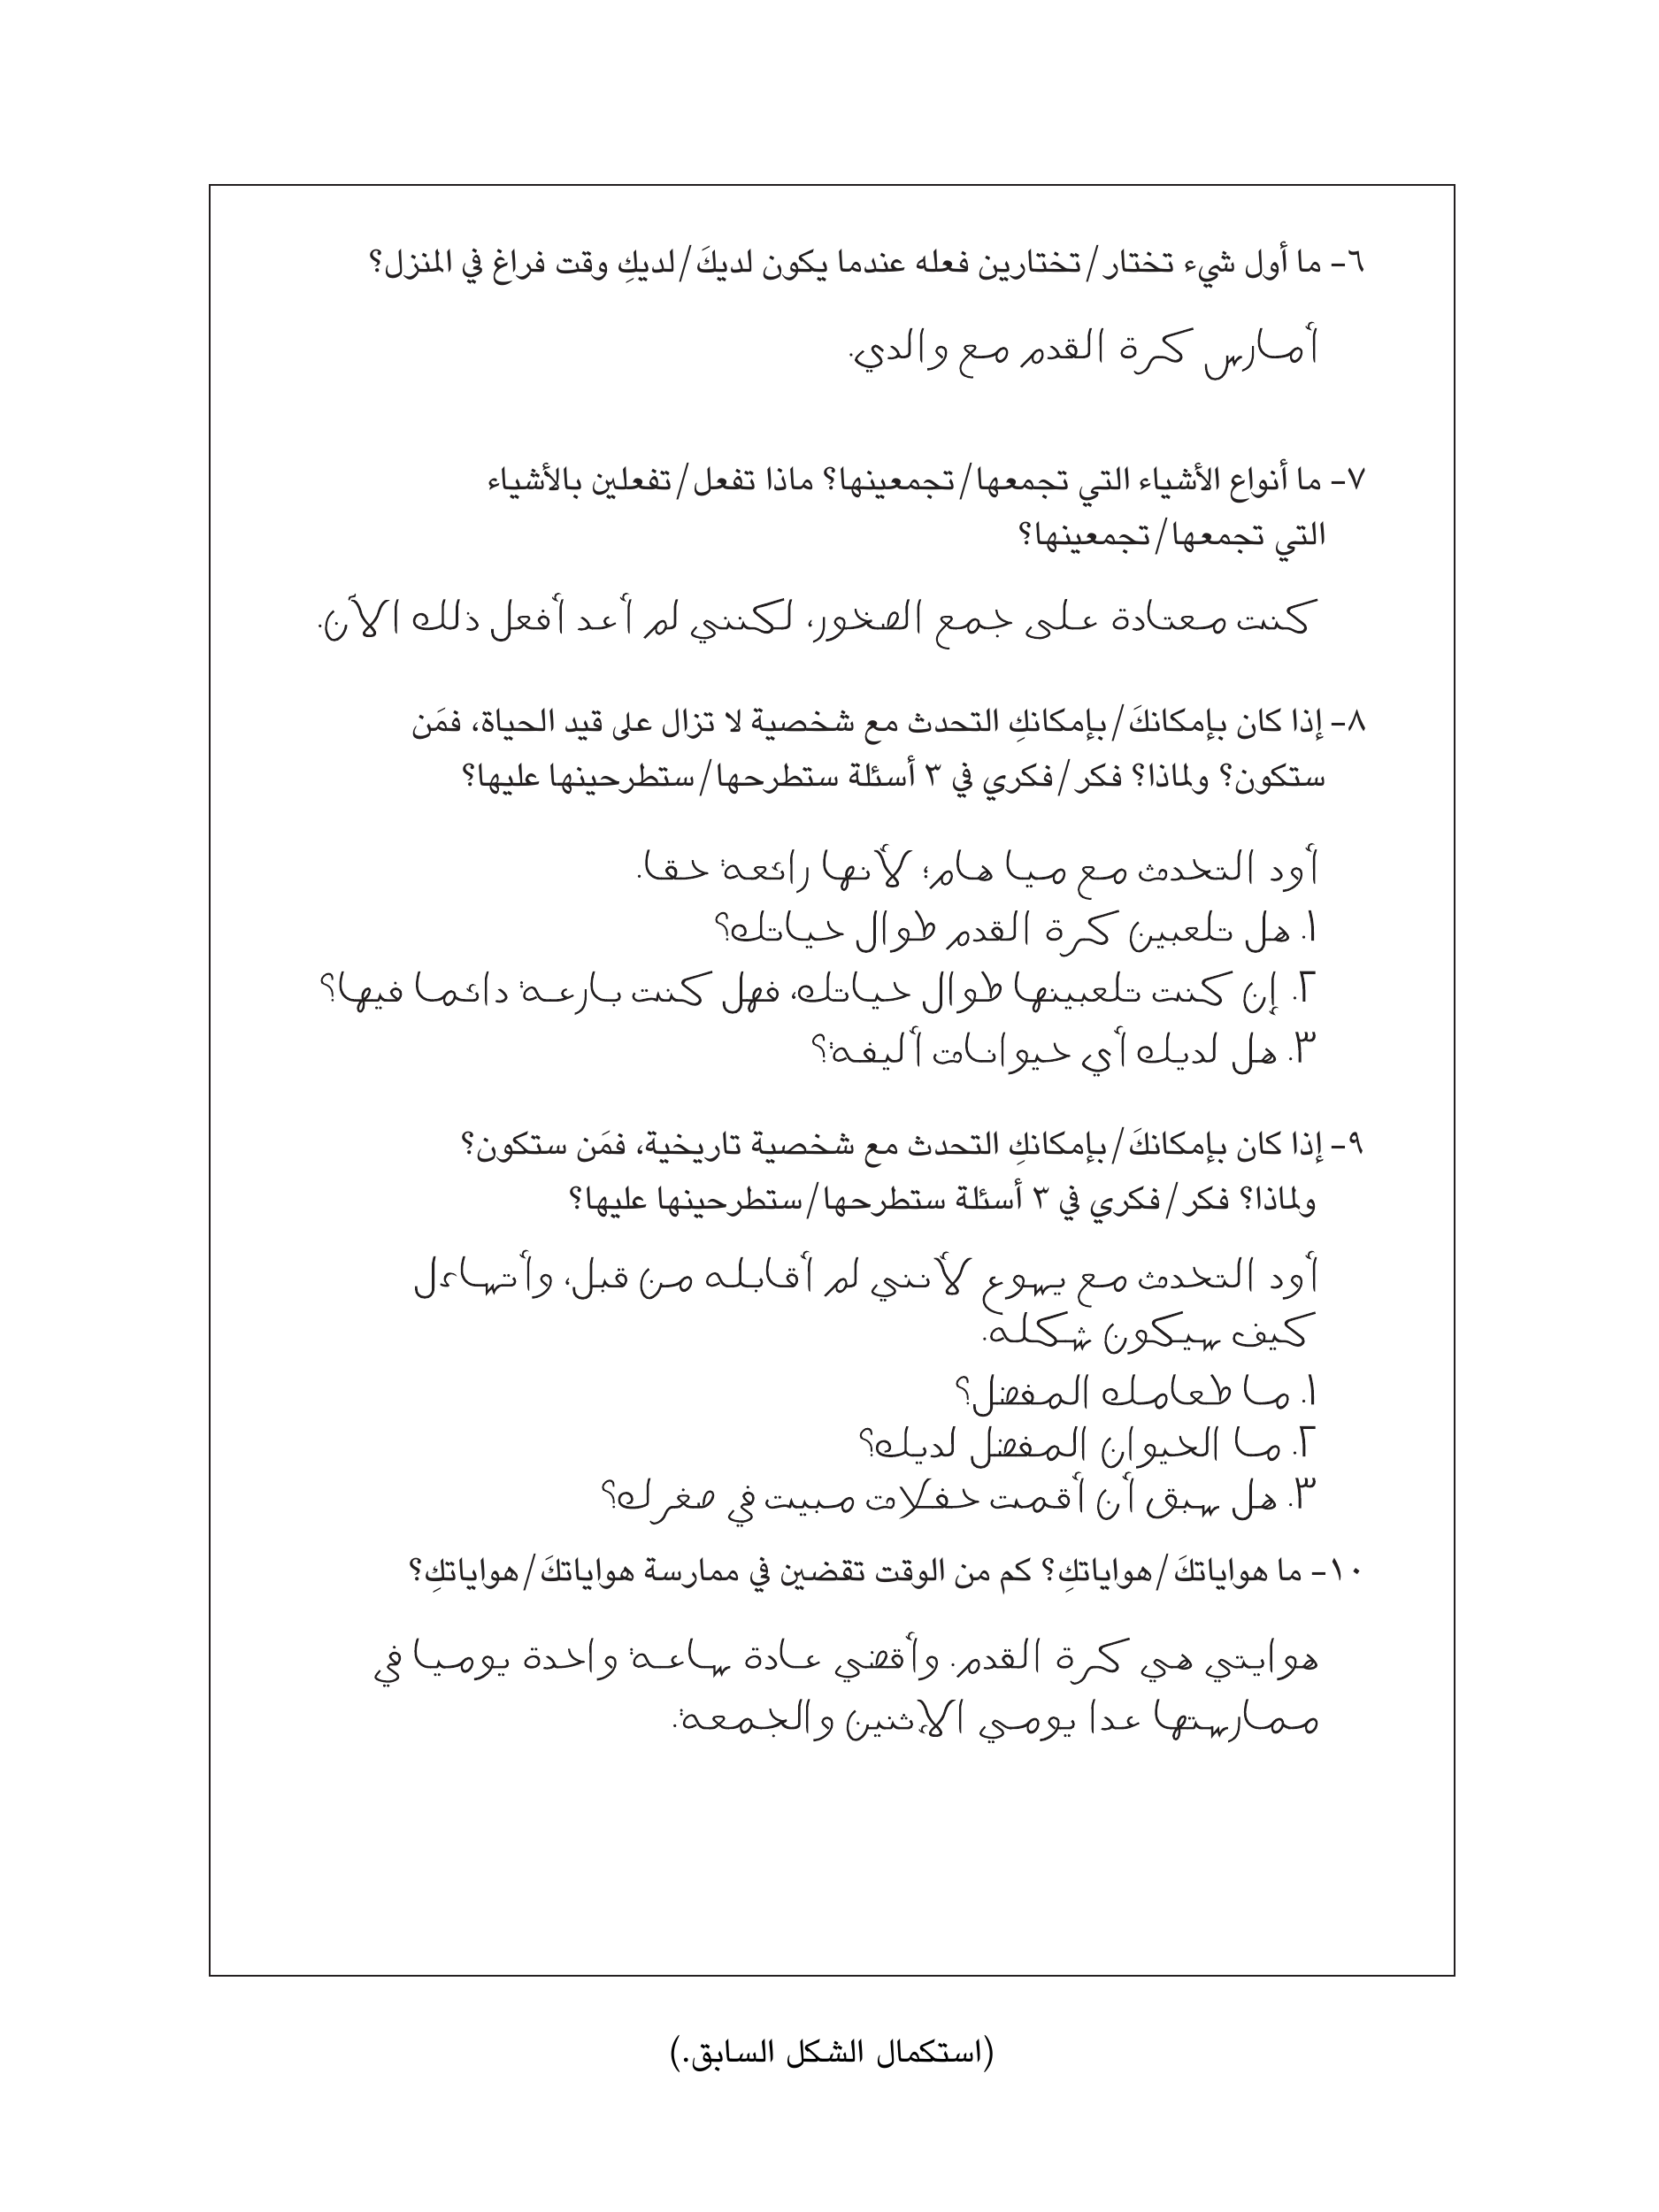 ٦- ما أول شيء تختار/تختارين فعله عندما يكون لديكَ/لديكِ وقت فراغ في المنزل؟
أمارس كرة القدم مع والدي.
٧- ما أنواع الأشياء التي تجمعها/تجمعينها؟ ماذا تفعل/تفعلين بالأشياء
التي تجمعها/تجمعينها؟
كنت معتادة على جمع الصخور، لكنني لم أعد أفعل ذلك الآن.
٨- إذا كان بإمكانكَ/بإمكانكِ التحدث مع شخصية لا تزال على قيد الحياة، فمَن
ستكون؟ ولماذا؟ فكر/فكري في ٣ أسئلة ستطرحها/ستطرحينها عليها؟
أود التحدث مع ميا هام؛ لأنها رائعة حقا.
١. هل تلعبين كرة القدم طوال حياتك؟
٢. إن كنت تلعبينها طوال حياتك، فهل كنت بارعة دائما فيها؟
٣. هل لديك أي حيوانات أليفة؟
٩- إذا كان بإمكانكَ/بإمكانكِ التحدث مع شخصية تاريخية، فمَن ستكون؟
ولماذا؟ فكر/فكري في ٣ أسئلة ستطرحها/ستطرحينها عليها؟
أود التحدث مع يسوع لأنني لم أقابله من قبل، وأتساءل
كيف سيكون شكله.
١. ما طعامك المفضل؟
٢. ما الحيوان المفضل لديك؟
٣. هل سبق أن أقمت حفلات مبيت في صغرك؟
١٠- ما هواياتكَ/هواياتكِ؟ كم من الوقت تقضين في ممارسة هواياتكَ/هواياتكِ؟
هوايتي هي كرة القدم. وأقضي عادة ساعة واحدة يوميا في
ممارستها عدا يومي الإثنين والجمعة.
(استكمال الشكل السابق.)